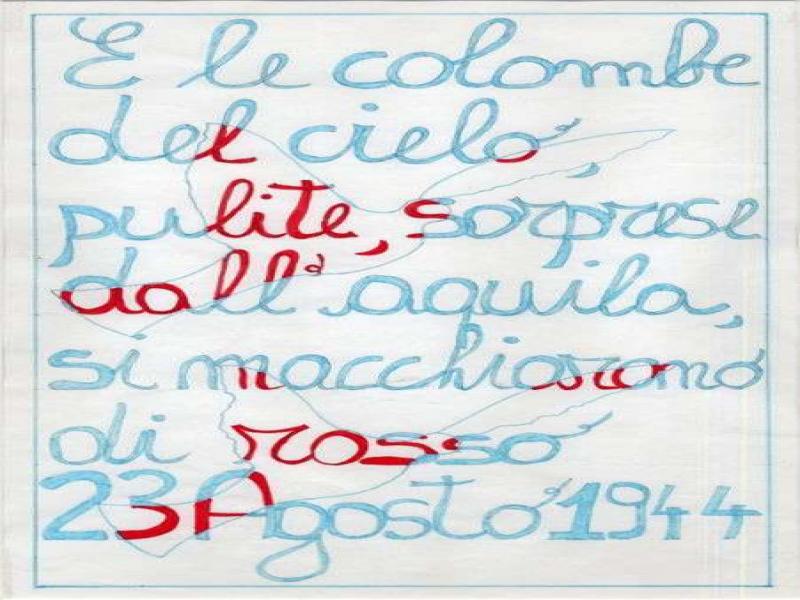 E le colombe
del cielo
pulite, sorprese
dall'aquila,
si macchiarono
di rosso
23 Agosto 1944